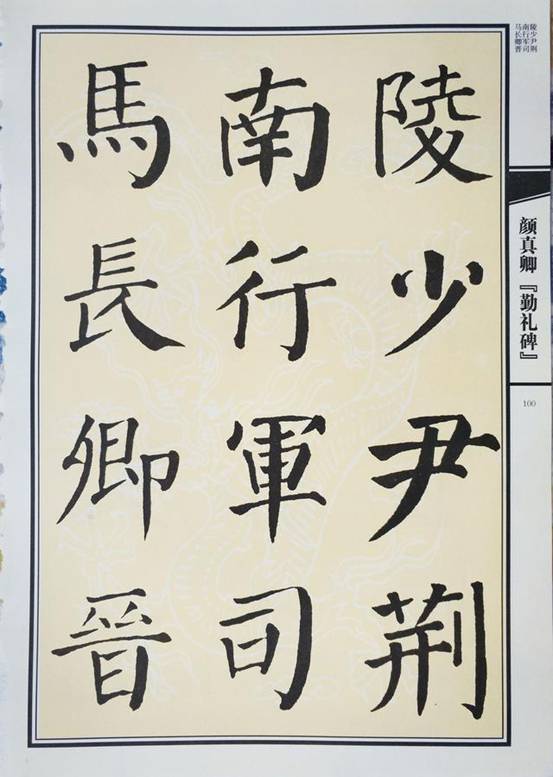 陵少尹荆
南行軍司
馬長卿晉
陵少尹荆
南行军司
马长卿晋
颜真卿『勤礼碑』
100